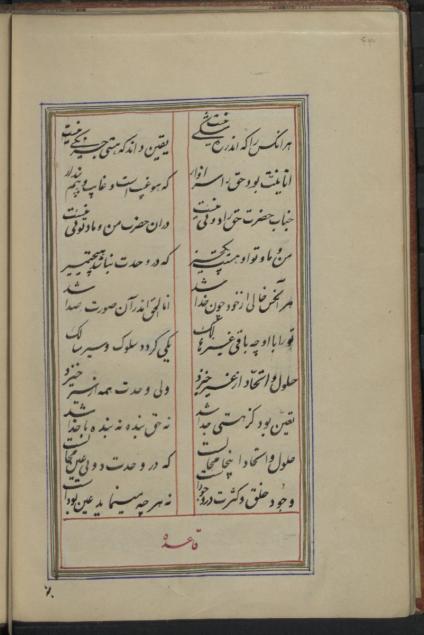 هرانکس را که اندر شکی نیست یقین داند که هستی جز یکی نیست
انانیت بود حق را سزاوار که هو غیب است و غایب وهم پندار
جناب حضرت حق را دوئی نیست دران حضرت من و ما و توئی نیست
من و ما و تو او هست یکچیز که در وحدت نباشد هیچ تمییز
هر آنکس خالی از خود چون خدا شد انا الحق اندر آن صورت صدا شد
تو را با او چه باقی غیر هالک یکی گردد سلوک و سیر سالک
حلول و اتحاد از غیر خیزد ولی وحدت همه از سیر خیزد
تعین بود کز هستی جدا شد نه حق بنده نه بنده با خدا شد
حلول و اتحاد اینجا محالست که در وحدت دوئی عین محالست
وجود خلق و کثرت در نه هر چه مینماید عین بود است
قاعده